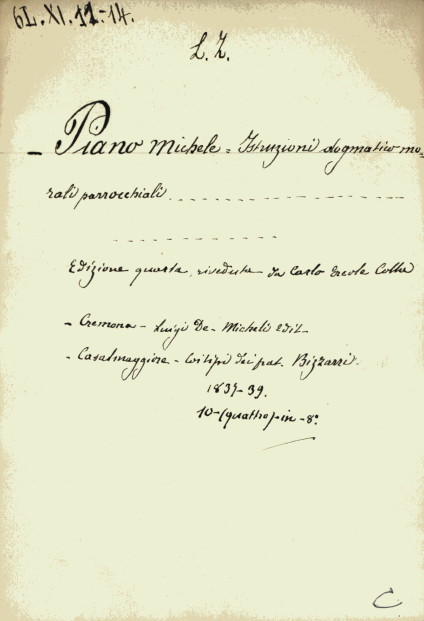 6L.XI.11-14.
L. Z.
- Piano Michele = Istruzioni dogmatico mo-
rali parrocchiali
Edizione quarta, riveduta da Carlo Ercole Colla
- Cremona - Luigi De-Micheli edit-
- Casalmaggiore - Co'tipi dei frat. Bizzarri.
1837-39.
10-(quattro)-in-8°.
C